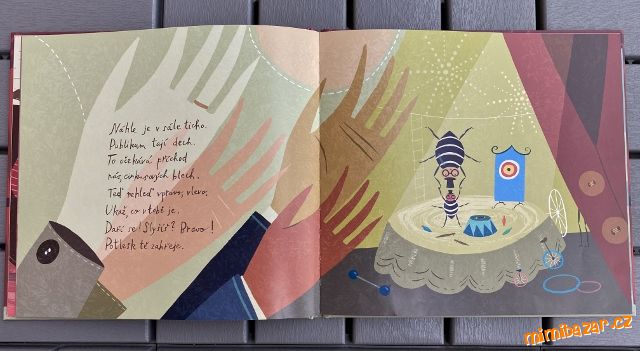 Náhle je v sále ticho.
Publikum tají dech.
To očekává příchod
nás, cirkusových blech.
Teď rozhleď vpravo, vlevo,
Ukaž, co v tobě je.
Daří se! Slyšíš? Bravo!
Potlesk tě zahřeje.
mimibazar.cz